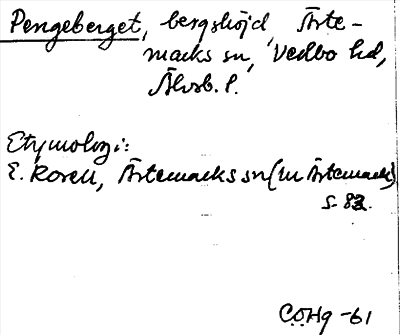 Pengeberget, bergshöjd, Ärte-
marks sn, Vedbo hd,
Älvsb. l.
Etymologi:
E. Rosell, Ärtemarks sn (in Ärtemark)
s. 83.
COHg -61